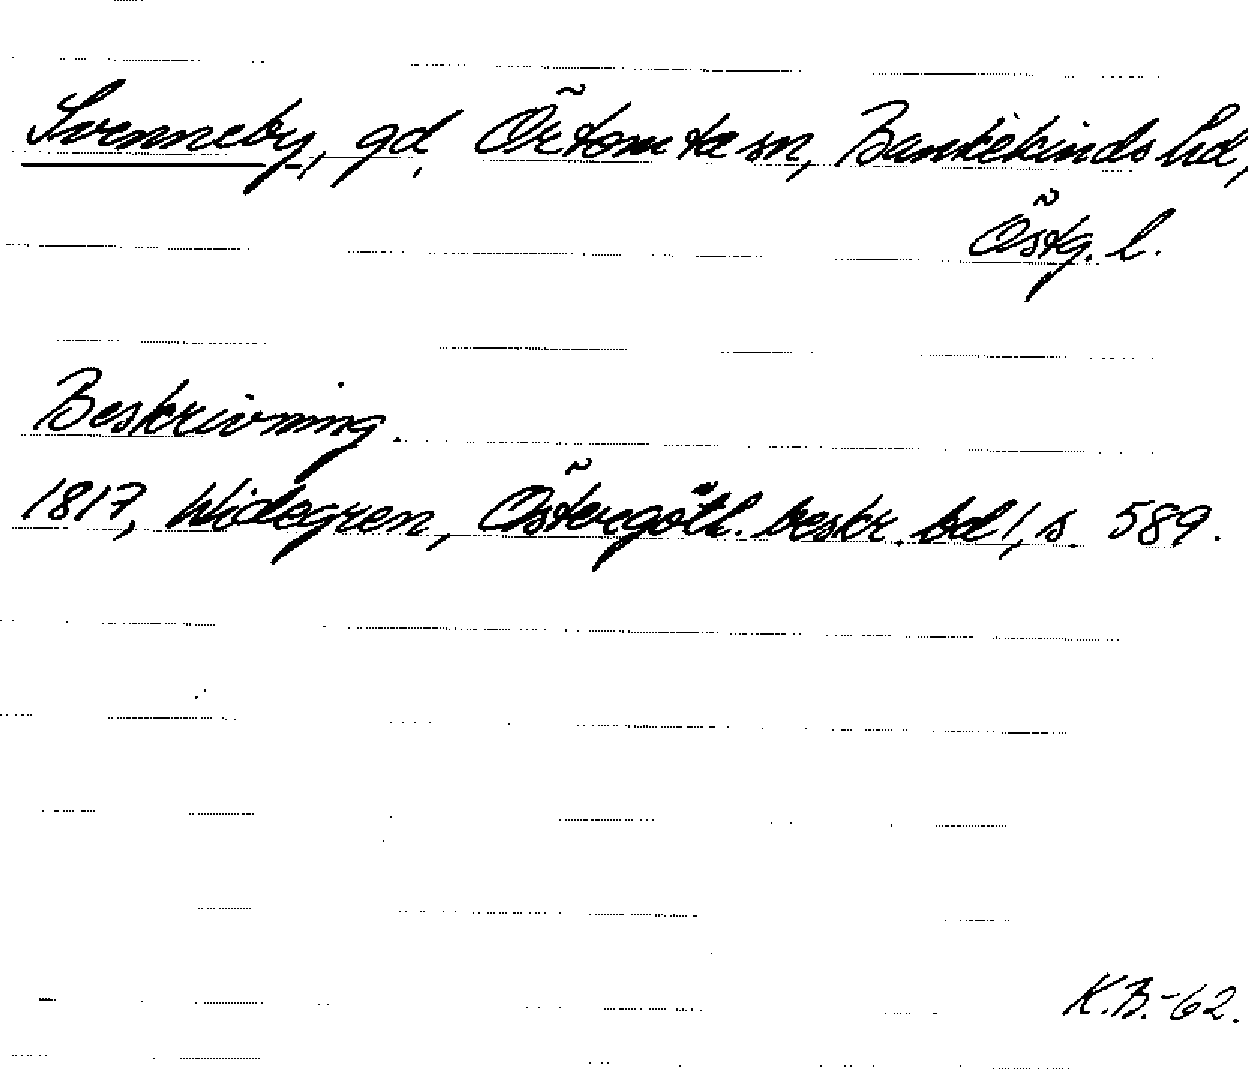 Svenneby, gd, Örtomta sn, Bankekinds hd,
Östg. l.
Beskrivning.
1817, Widegren, Östergötl. beskr. bd 1, s. 589.
K.B.-62.